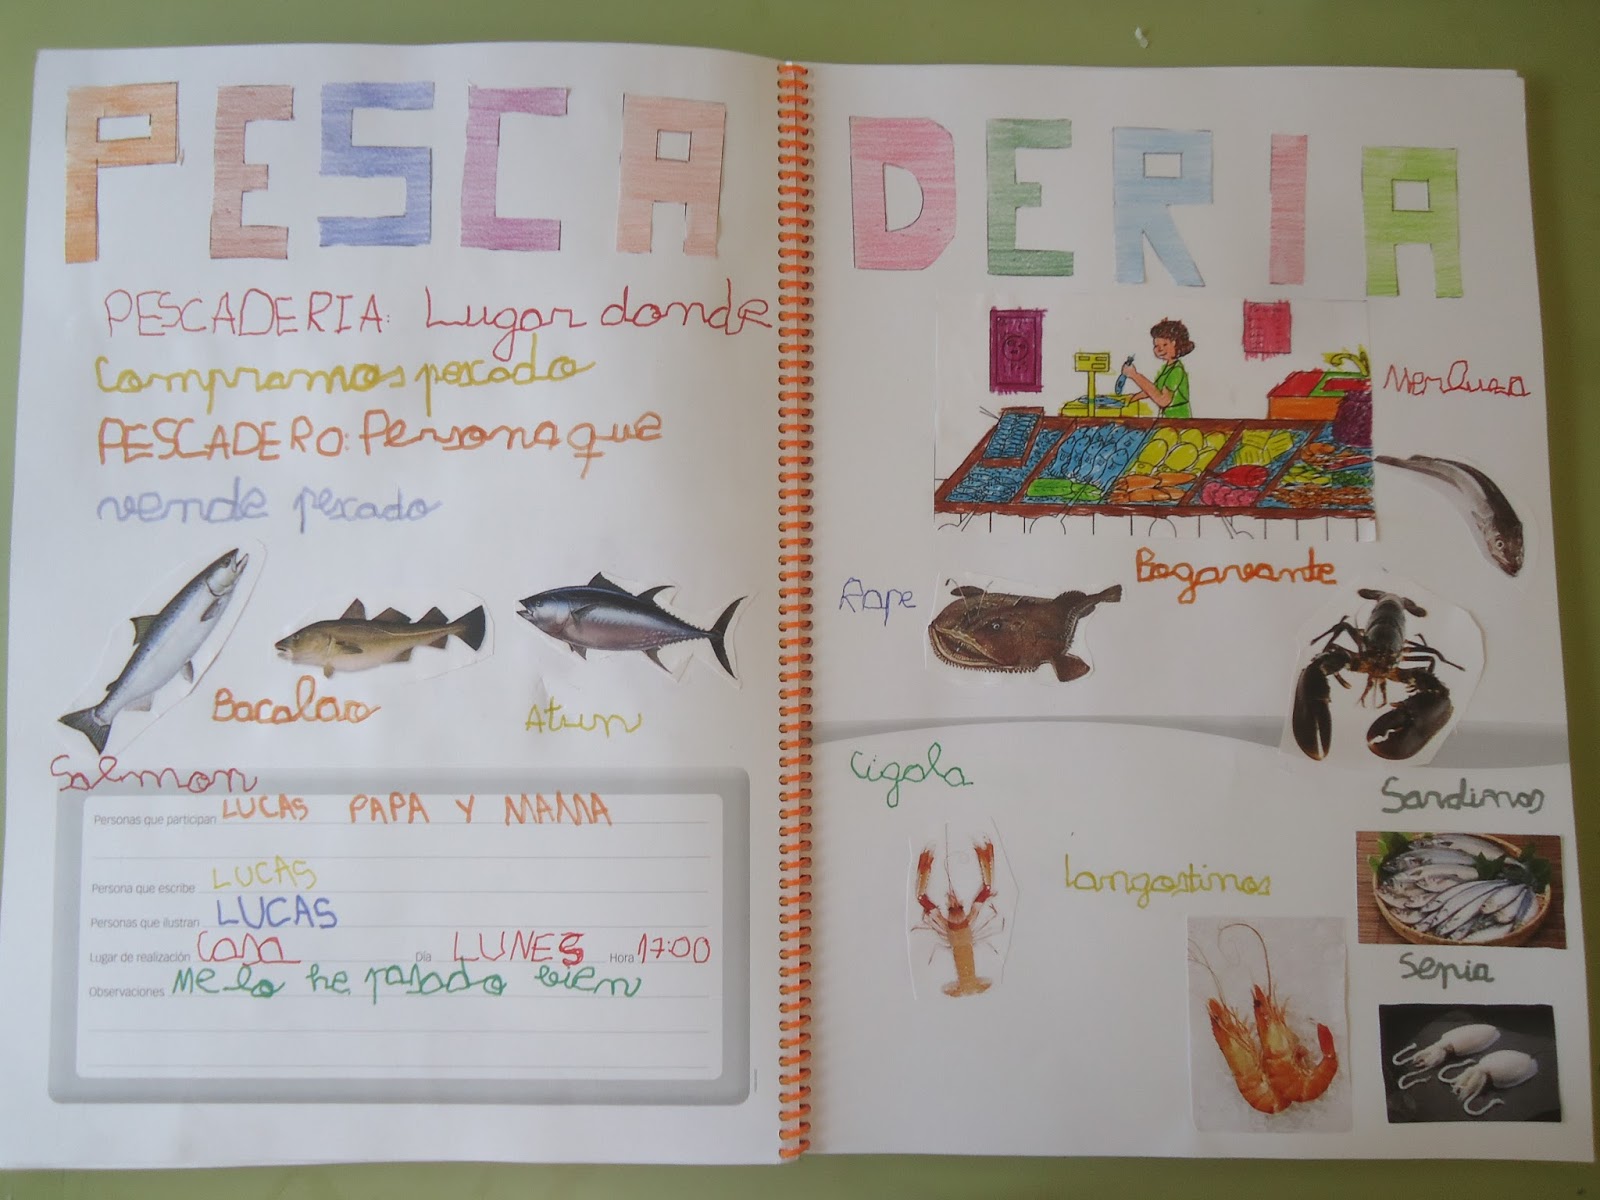 PESCA
PESCADERIA: Lugar donde
compramos pescado
PESCADERO: Persona que
vende pescado
Bacalao
Atun
Salmon
Personas que participan LUCAS PAPA Y MAMA
Persona que escribe LUCAS
Personas que ilustran LUCAS
Lugar de realización Casa Día LUNES Hora 17:00
Observaciones Me lo he pasado bien
DERIA
Merluza
Bogavante
Rape
Cigala
Sardinas
Langostinos
Sepia